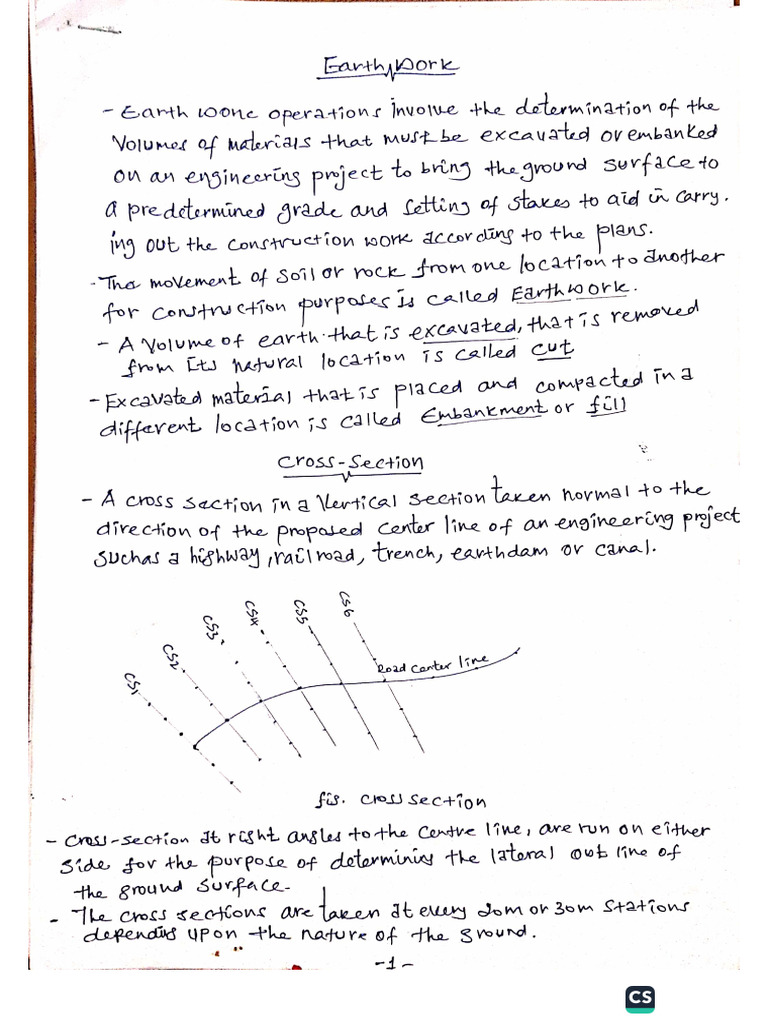 Earth Work
- Earth work operations involve the determination of the
Volumes of materials that must be excavated or embanked
on an engineering project to bring the ground surface to
a predetermined grade and setting of stakes to aid in carry-
ing out the construction work according to the plans.
- The movement of soil or rock from one location to another
for construction purposes is called Earthwork.
- A Volume of earth that is excavated, that is removed
from Its natural location is called cut
- Excavated material that is placed and compacted in a
different location is called Embankment or fill
Cross-Section
- A cross section in a Vertical section taken normal to the
direction of the proposed center line of an engineering project
suchas a highway, railroad, trench, earthdam or canal.
CS1
CS2
CS3
CS4
CS5
CS6
Road center line
fig. cross section
- Cross-section at right angles to the centre line, are run on either
side for the purpose of determining the lateral out line of
the ground surface.
- The cross sections are taken at every 20m or 30m stations
depending upon the nature of the ground.
-1-
CS